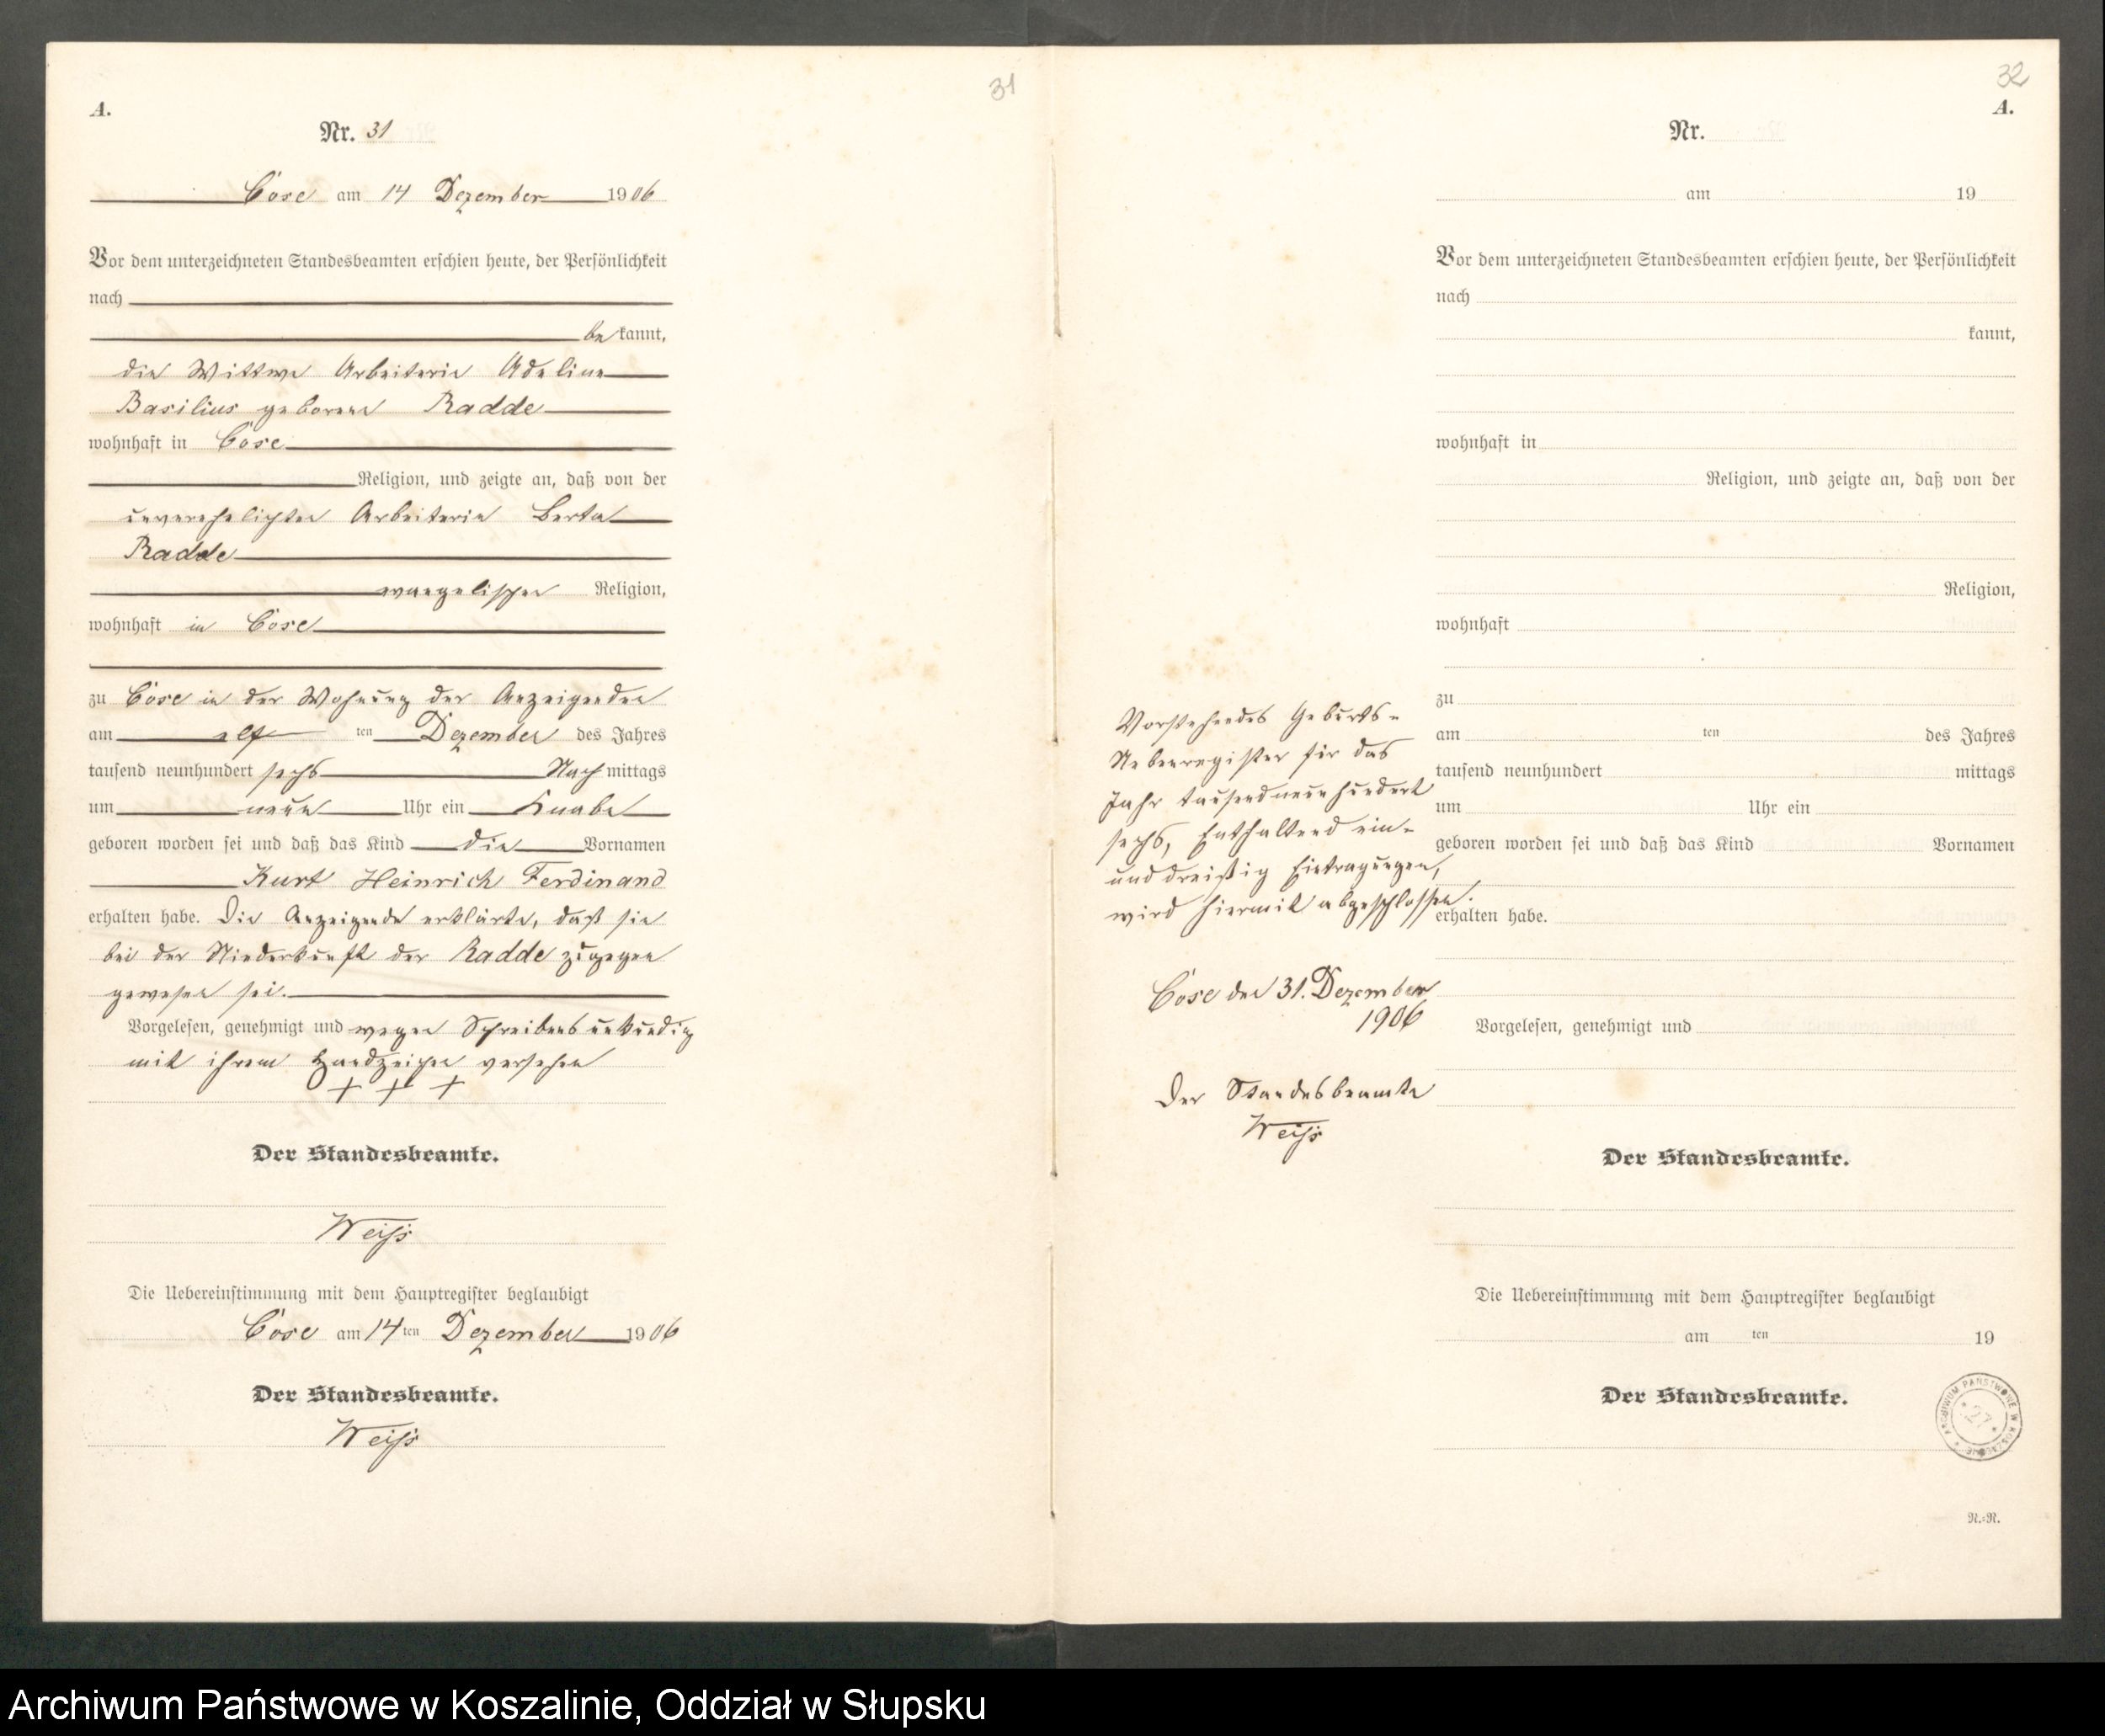 31
A.
Nr. 31
Cose am 14 Dezember 1906
Vor dem unterzeichneten Standesbeamten erschien heute, der Persönlichkeit
nach
be kannt,
die Wittwe Arbeiterin Adeline
Basilius geborene Radde
wohnhaft in Cose
Religion, und zeigte an, daß von der
unverehelichten Arbeiterin Berta
Radde
evangelischer Religion,
wohnhaft in Cose
zu Cose in der Wohnung der Anzeigenden
am elf ten Dezember des Jahres
tausend neunhundert sechs Nach mittags
um neun Uhr ein Knabe
geboren worden sei und daß das Kind die Vornamen
Kurt Heinrich Ferdinand
erhalten habe. Die Anzeigende erklärte, daß sie
bei der Niederkunft der Radde zugegen
gewesen sei.
Vorgelesen, genehmigt und wegen Schreibensunkundig
mit ihrem Handzeichen versehen
+ + +
Der Standesbeamte.
Weiß
Die Uebereinstimmung mit dem Hauptregister beglaubigt
Cose am 14 ten Dezember 1906
Der Standesbeamte.
Weiß
32
A.
Nr.
am 19
Vor dem unterzeichneten Standesbeamten erschien heute, der Persönlichkeit
nach
kannt,
wohnhaft in
Religion, und zeigte an, daß von der
Religion,
wohnhaft
zu
am ten des Jahres
tausend neunhundert mittags
um Uhr ein
geboren worden sei und daß das Kind Vornamen
erhalten habe.
Vorgelesen, genehmigt und
Der Standesbeamte.
Die Uebereinstimmung mit dem Hauptregister beglaubigt
am ten 19
Der Standesbeamte.
Vorstehendes Geburts-
Nebenregister für das
Jahr tausendneunhundert
sechs, Enthaltend ein-
unddreißig Eintragungen,
wird hiermit abgeschlossen.
Cose den 31. Dezember
1906
Der Standesbeamte
Weiß
ARCHIWUM PAŃSTWOWE W KOSZALINIE
27
N.-R.
Archiwum Państwowe w Koszalinie, Oddział w Słupsku